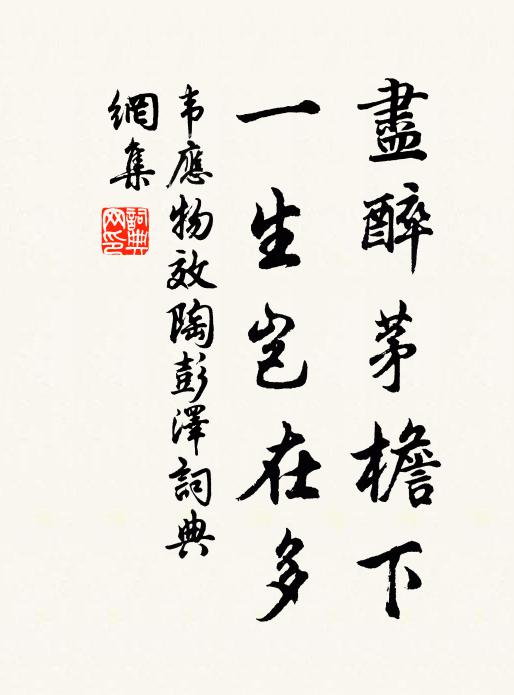 盡醉茅檐下
一生岂在多
韦應物效陶彭澤詞典
網集
詞典网印